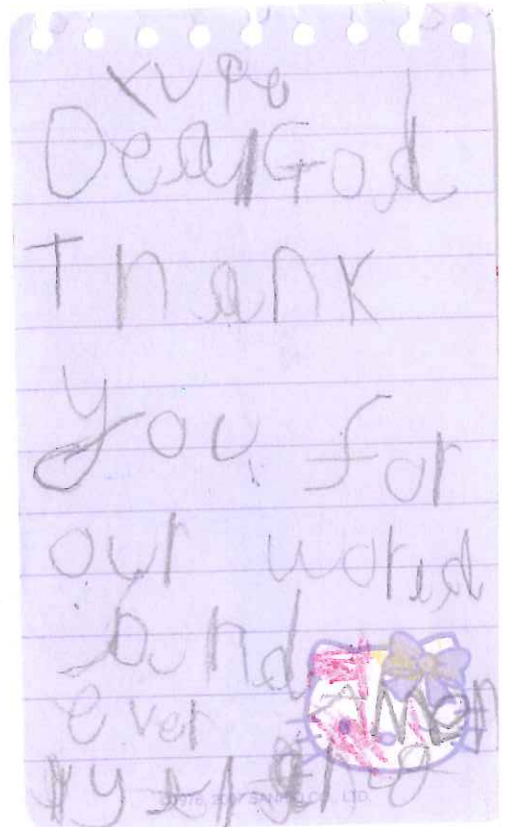 Dear God
Thank
you for
our worled
and
ever Amen
ything
©1976, 2007 SANRIO CO., LTD.